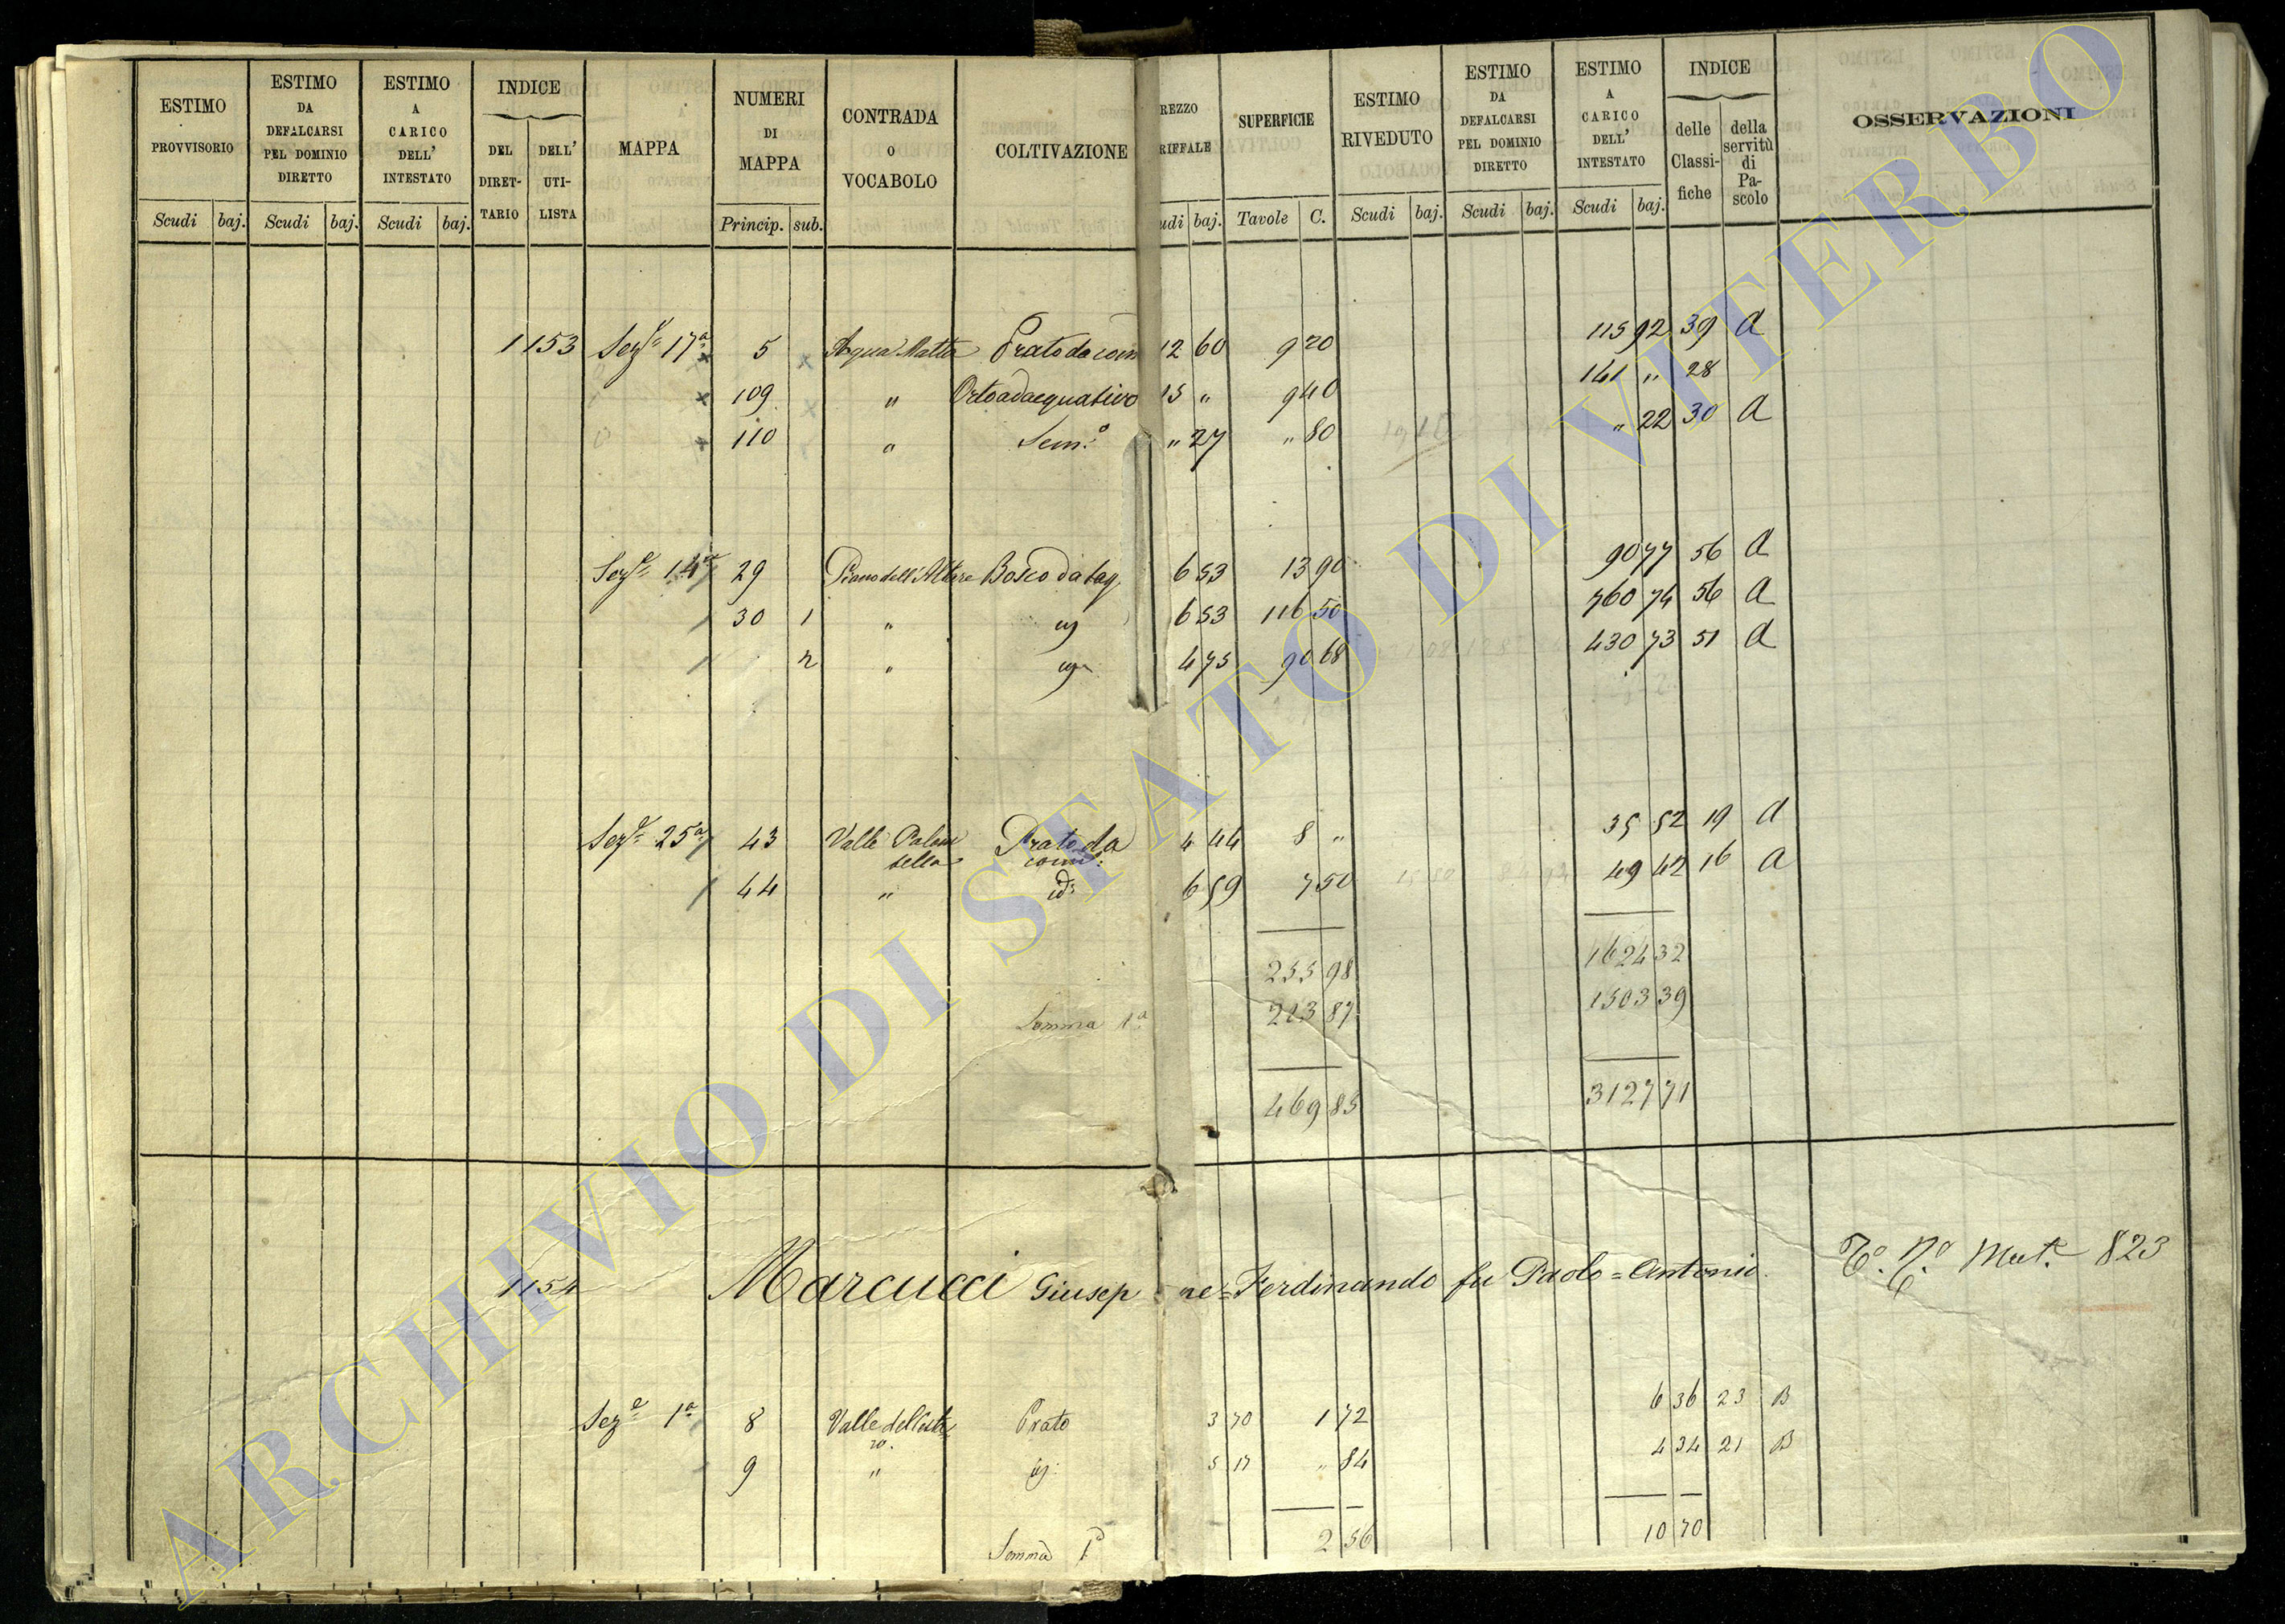 ESTIMO PROVVISORIO | ESTIMO DA DEFALCARSI PEL DOMINIO DIRETTO | ESTIMO A CARICO DELL' INTESTATO | INDICE DEL DIRETTARIO | DELL' UTILISTA | MAPPA | NUMERI DI MAPPA | CONTRADA O VOCABOLO | COLTIVAZIONE | REZZO RIFFALE | SUPERFICIE | ESTIMO RIVEDUTO | ESTIMO DA DEFALCARSI PEL DOMINIO DIRETTO | ESTIMO A CARICO DELL' INTESTATO | INDICE delle Classifiche | della servitù di Pascolo | OSSERVAZIONI
Scudi baj. Scudi baj. Scudi baj. Princip. sub. udi baj. Tavole C. Scudi baj. Scudi baj. Scudi baj.
1153 Sez.e 17a 5 Aqua Matta Prato da com 12 60 9 20 115 92 39 A
109 " Orto adaequativo 15 " 9 40 141 " 28
110 " Sem.o " 27 " 80 " 22 30 A
Sez.e 14a 29 Piano dell'Altare Bosco da tag. 6 53 13 90 90 77 56 A
30 1 " 6 53 116 50 760 74 56 A
2 " 4 75 90 68 430 73 51 A
Sez.e 25a 43 Valle Palom
bella Prato da
com: 4 44 8 " 35 52 19 A
44 " id: 6 59 7 50 49 42 16 A
255 98 1624 32
Somma 1a 213 87 1503 39
469 85 3127 71
1154 Marcucci Giuseppe=Ferdinando fu Paolo=Antonio T.o N.o Mut.e 823
Sez.e 1a 8 Prato 3 70 1 72 6 36 23 B
9 " 5 17 " 84 4 34 21 B
Somma 2 56 10 70
ARCHIVIO DI STATO DI VITERBO